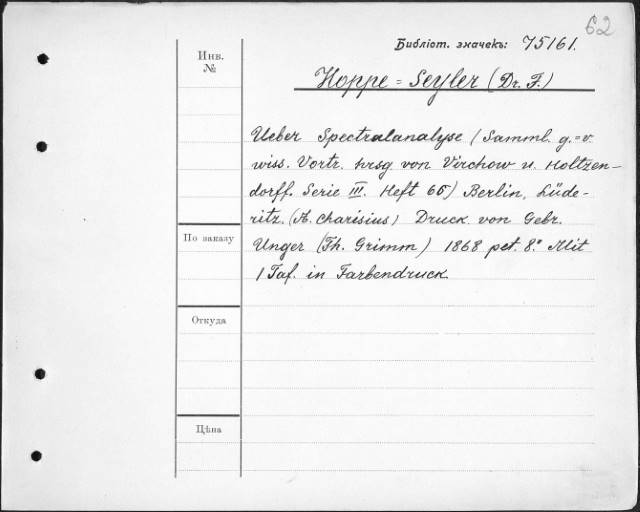 62
Библіот. значекъ: 75161.
Инв.
№
Hoppe=Seyler (Dr. F.)
Ueber Spectralanalyse (Samml. g.=v.
wiss. Vortr. hrsg. von Virchow u. Holtzen-
dorff. Serie III. Heft 66) Berlin, Lüde-
ritz. (A. Charisius) Druck von Gebr.
По заказу
Unger (Th. Grimm) 1868 pet. 8.° Mit
1 Taf. in Farbendruck.
Откуда
Цѣна